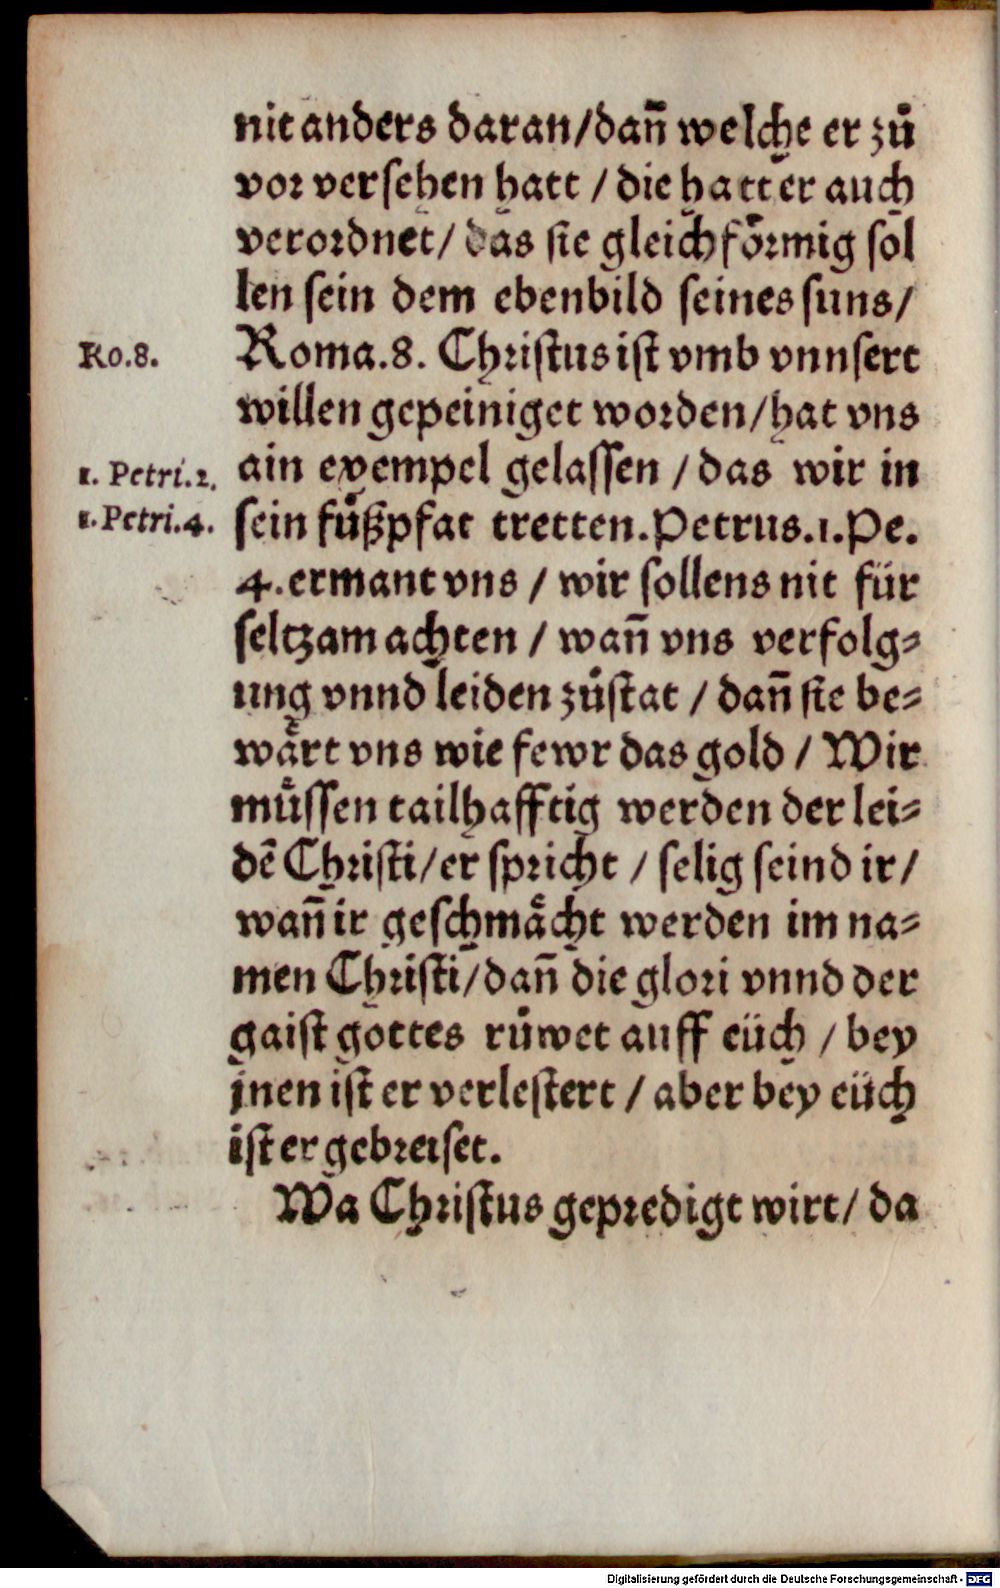 nit anders daran/dañ welche er zů
vor versehen hatt / die hatt er auch
verordnet/ das sie gleichfoͤrmig sol
len sein dem ebenbild seines suns/
Ro.8.
Roma.8. Christus ist vmb vnnsert
willen gepeiniget worden/hat vns
1. Petri.2.
ain exempel gelassen / das wir in
1.Petri.4.
sein fůßpfat tretten.Petrus.1.Pe.
4.ermant vns / wir sollens nit für
seltzam achten / wañ vns verfolg⸗
ung vnnd leiden zůstat / dañ sie be⸗
waͤrt vns wie fewr das gold / Wir
muͤssen tailhafftig werden der lei⸗
dē Christi/er spricht / selig seind ir/
wañ ir geschmaͤcht werden im na⸗
men Christi/dañ die glori vnnd der
gaist gottes růwet auff eüch / bey
jnen ist er verlestert / aber bey eüch
ist er gebreiset.
Wa Christus gepredigt wirt/ da
Digitalisierung gefördert durch die Deutsche Forschungsgemeinschaft - DFG